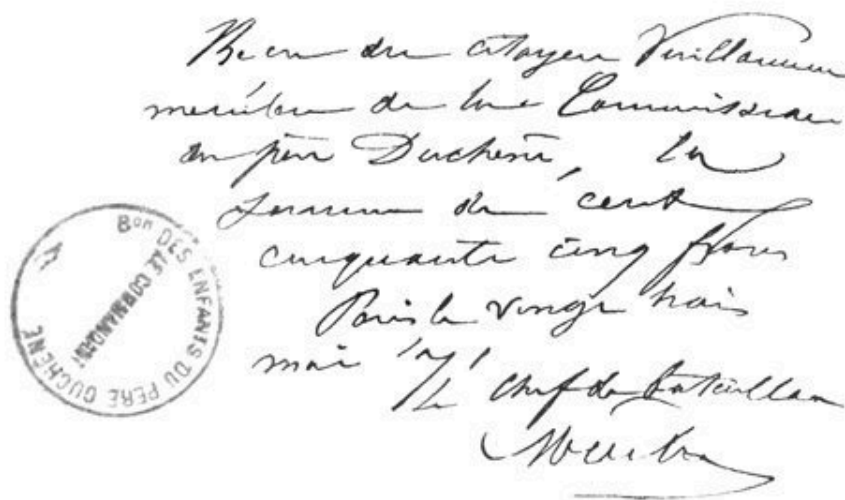 Recu du citoyen Vuillaume
membre de la Commission
du père Duchêne, la
somme de cent
cinquante cinq francs
Paris le vingt trois
mai 71
Le chef de bataillon
Bon DES ENFANTS DU PERE DUCHENE
LE COMMANDANT